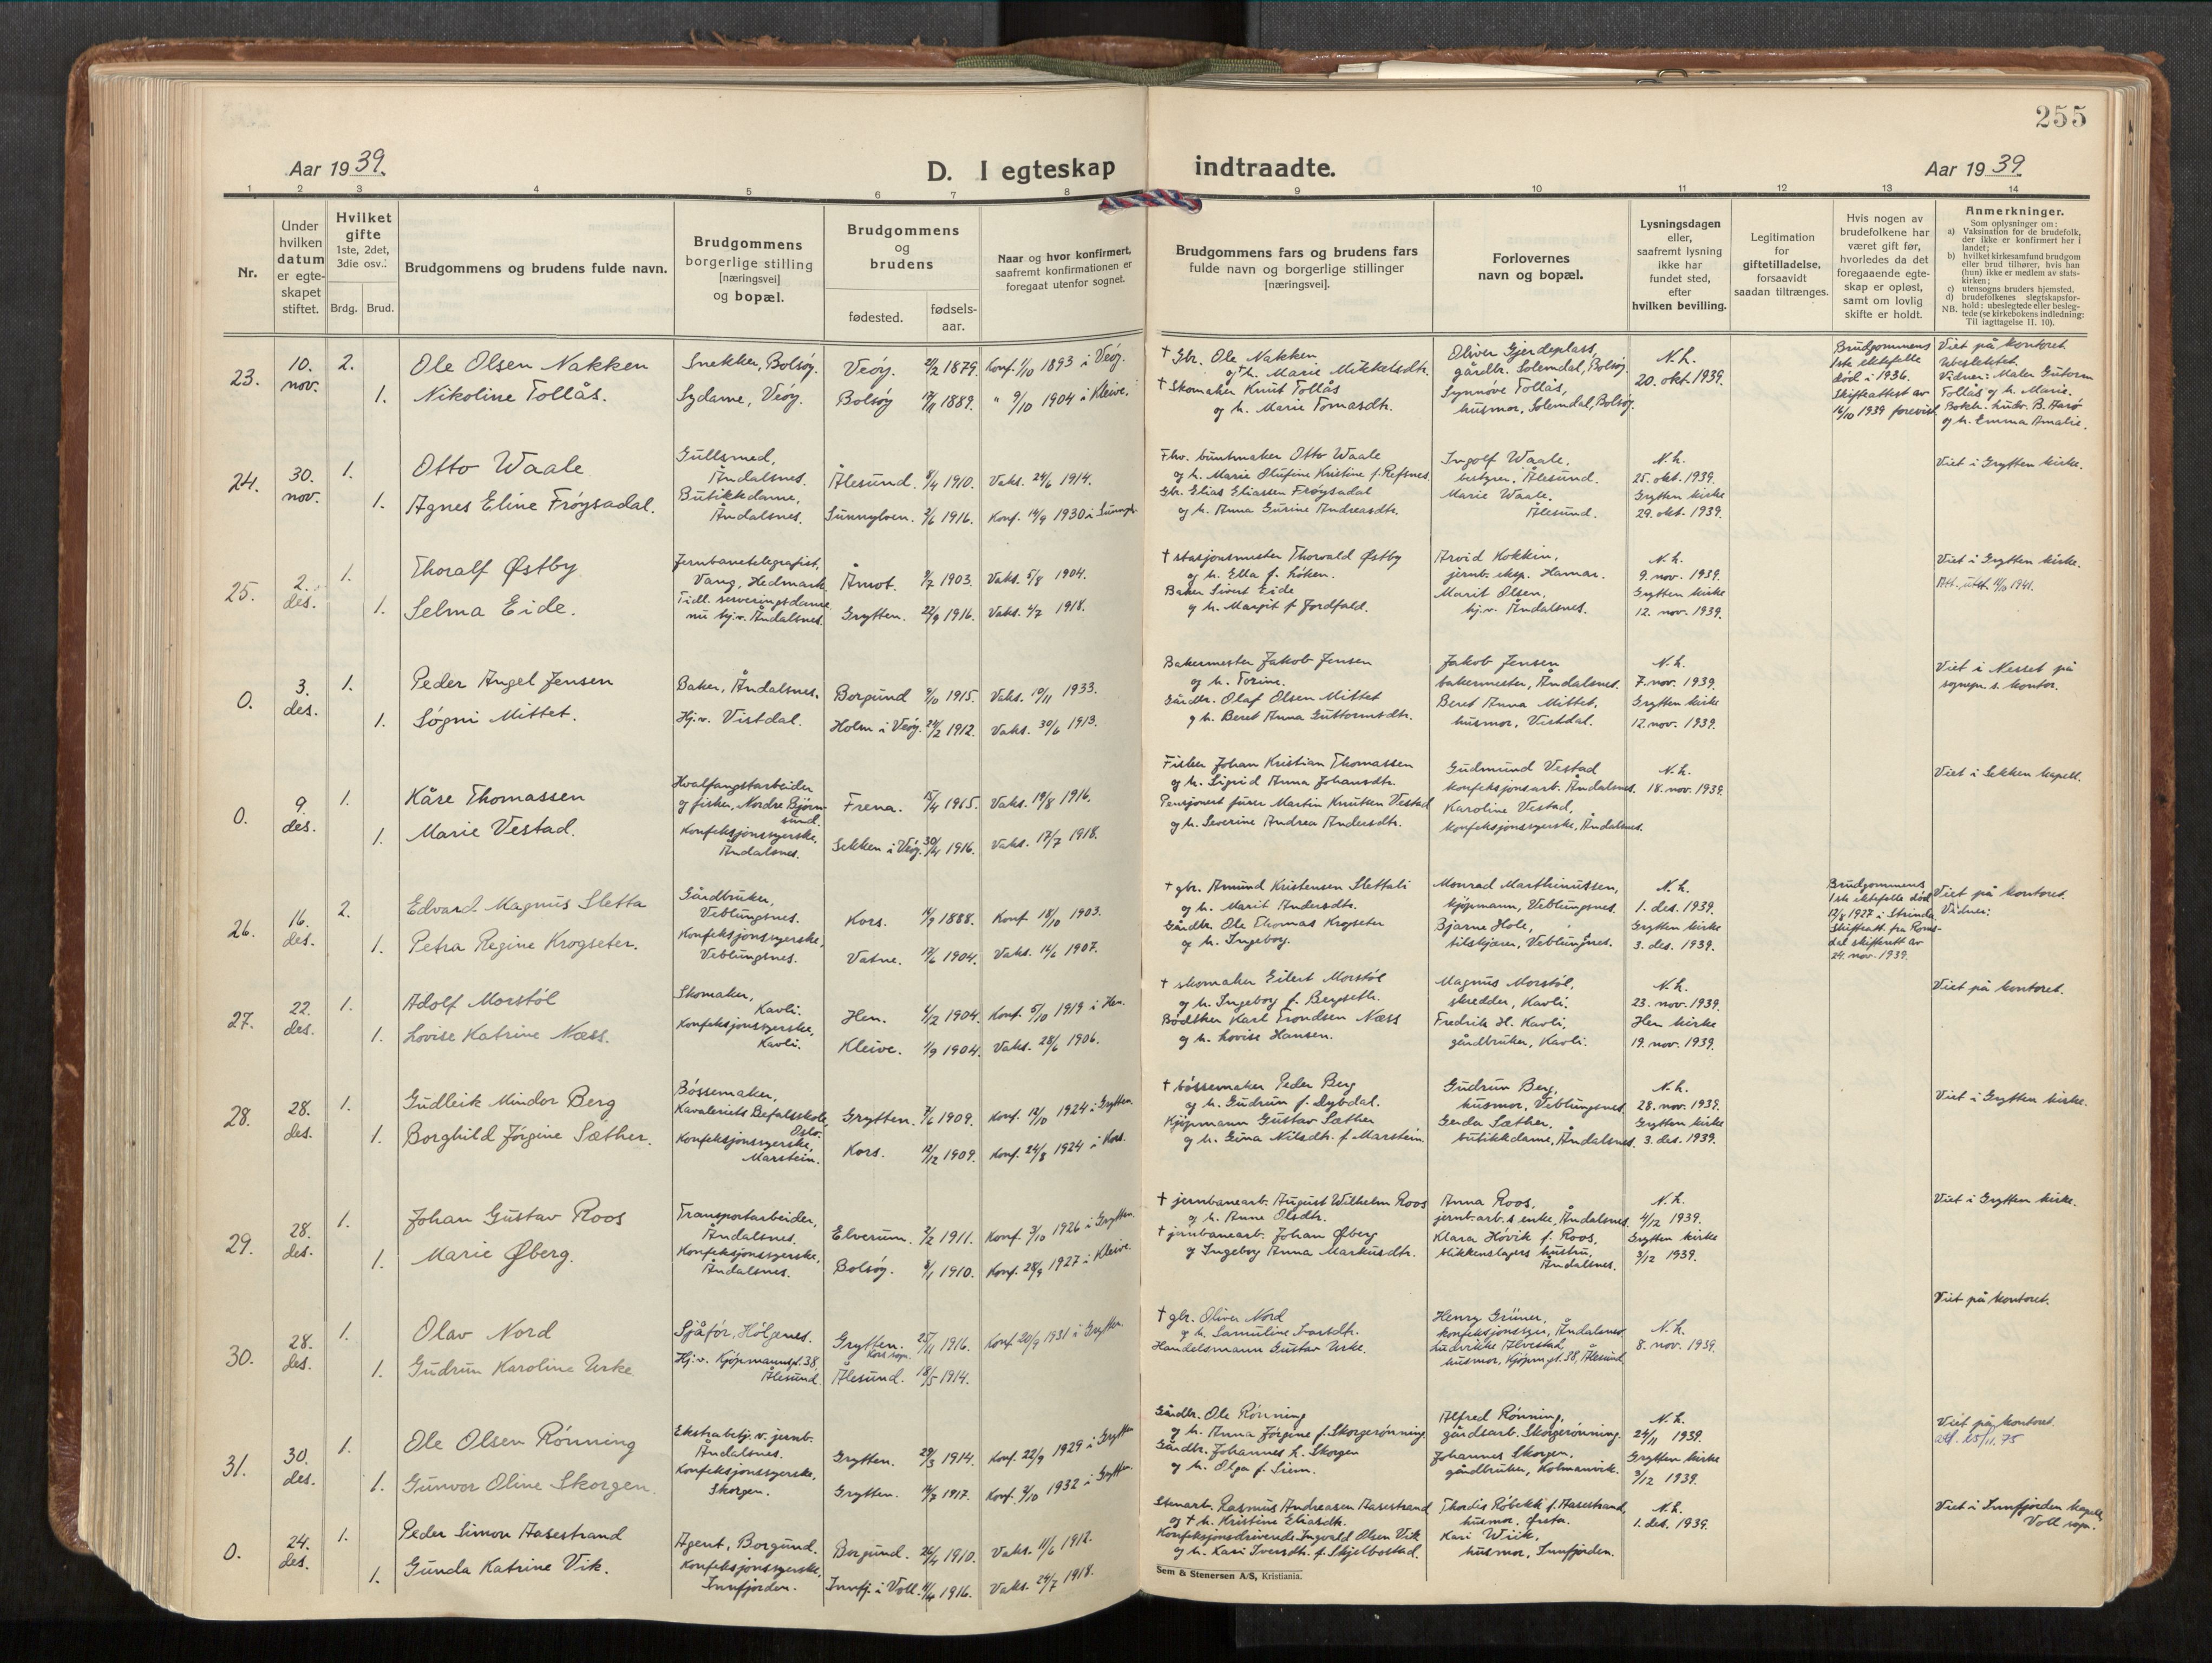 255
Aar 1939.
D. I egteskap indtraadte.
Aar 1939.
1 2 3 4 5 6 7 8 9 10 11 12 13 14
Nr.
Under
hvilken
datum
er egte-
skapet
stiftet.
Hvilket
gifte
1ste, 2det,
3die osv.:
Brdg. Brud.
Brudgommens og brudens fulde navn.
Brudgommens
borgerlige stilling
[næringsvei]
og bopæl.
Brudgommens
og
brudens
fødested.
fødsels-
aar.
Naar og hvor konfirmert,
saafremt konfirmationen er
foregaat utenfor sognet.
Brudgommens fars og brudens fars
fulde navn og borgerlige stillinger
[næringsvei].
Forlovernes
navn og bopæl.
Lysningsdagen
eller,
saafremt lysning
ikke har
fundet sted,
efter
hvilken bevilling.
Legitimation
for
giftetilladelse,
forsaavidt
saadan tiltrænges.
Hvis nogen av
brudefolkene har
været gift før,
hvorledes da det
foregaaende egte-
skap er opløst,
samt om lovlig
skifte er holdt.
Anmerkninger.
Som oplysninger om:
a) Vaksination for de brudefolk,
der ikke er konfirmert her i
landet;
b) hvilket kirkesamfund brudgom
eller brud tilhører, hvis han
(hun) ikke er medlem av stats-
kirken;
c) utensogns bruders hjemsted.
d) brudefolkenes slegtskapsfor-
hold: ubeslegtede eller besleg-
tede (se kirkebokens indledning:
NB. Til iagttagelse II. 10).
23.
10.
nov.
2.
Ole Olsen Nakken
Snekker, Bolsøy.
Veøy.
1879.
Konf. 1/10 1893 i Veøy.
1.
Nikoline Tollås.
Sydame, Veøy.
Bolsøy
1889.
" 9/10 1904 i Kleive.
† Gbr. Ole Nakken
og † h. Marie Mikkelsdtr.
† Skomaker Knut Tollås
og h. Marie Tomasdtr.
Oliver Gjerdeplass,
gårdbr. Solemdal, Bolsøy.
Synnøve Tollås,
husmor, Solemdal, Bolsøy.
N. h.
20. okt. 1939.
Brudgommens
1ste ektefelle
død i 1936.
Skifteattest av
16/10 1939 forevist.
Viet på kontoret.
Ubeslektet.
Vidner: Maler Gutorm
Tollås og h. Marie.
Bokh. B. Aarø
og h. Emma Amalie.
24.
30.
nov.
1.
Otto Waale
Gullsmed,
Åndalsnes.
Ålesund.
1910.
Vaks. 24/6 1914.
1.
Agnes Eline Frøysadal.
Butikkdame,
Åndalsnes.
Sunnylven.
1916.
Konf. 14/9 1930 i Sunnyl.
Fhv. buntmaker Otto Waale
og h. Marie Olufine Kristine f. Refsnes.
Gbr. Elias Eliassen Frøysadal
og h. Anna Gurine Andreasdtr.
Ingolf Waale,
Ålesund.
Marie Waale,
Ålesund.
N. h.
25. okt. 1939.
Grytten kirke
29. okt. 1939.
Viet i Grytten kirke.
25.
2.
des.
1.
Thoralf Østby
Jernbanetelegrafist,
Vang, Hedmark
Åmot.
1903.
Vaks. 5/8 1904.
1.
Selma Eide.
Tidl. serveringsdame
nu hj.v. Åndalsnes.
Grytten.
22/9 1916.
Vaks. 4/7 1918.
† stasjonsmester Thorvald Østby
og h. Ella f. Løken.
Baker Sivert Eide
og h. Margit f. Jordfald.
Arvid Kokkin,
jernb. eksp. Hamar.
Marit Olsen,
hj.v. Åndalsnes.
N. h.
9. nov. 1939.
Grytten kirke
12. nov. 1939.
Viet i Grytten kirke.
Att. utst. 1941.
0.
3.
des.
1.
Peder Angel Jensen
Baker, Åndalsnes.
Borgund
1915.
Vaks. 10/11 1933.
1.
Søgni Mittet.
Hj.v. Vistdal.
Holm i Veøy.
1912.
Vaks. 30/6 1913.
Bakermester Jakob Jensen
og h. Torine.
Gårdbr. Olaf Olsen Mittet
og h. Beret Anna Guttormsdtr.
Jakob Jensen
bakermester, Åndalsnes.
Beret Anna Mittet,
husmor, Vistdal.
N. h.
7. nov. 1939.
Grytten kirke
12. nov. 1939.
Viet i Nesset på
sognepr. s. kontor.
0.
9.
des.
1.
Kåre Thomassen
Hvalfangstarbeider
og fisker, Nordre Bjørn-
sund.
Frena.
15/4 1915.
Vaks. 19/8 1916.
1.
Marie Vestad.
Konfeksjonssyerske,
Åndalsnes.
Sekken i Veøy.
1916.
Vaks. 17/7 1918.
Fisker Johan Kristian Thomassen
og h. Sigrid Anna Johansdtr.
Pensjonert fører Martin Knutsen Vestad
og h. Severine Andrea Andersdtr.
Gudmund Vestad
konfeksjonsarb. Åndalsnes.
Karoline Vestad,
konfeksjonssyerske, Åndalsnes.
N. h.
18. nov. 1939.
Viet i Sekken kapell.
26.
16.
des.
2.
Edvard Magnus Sletta
Gårdbruker,
Veblungsnes.
Kors.
1888.
Konf. 18/10 1903.
1.
Petra Regine Krogseter.
Konfeksjonssyerske,
Veblungsnes.
Vatne.
1904.
Vaks. 14/6 1907.
† gbr. Amund Kristensen Slettali
og h. Marit Andersdtr.
Gårdbr. Ole Thomas Krogseter
og h. Ingeborg.
Monrad Marthinussen,
kjøpmann, Veblungsnes.
Bjarne Hole,
tilskjærer, Veblungsnes.
N. h.
1. des. 1939.
Grytten kirke
3. des. 1939.
Brudgommens
1ste ektefelle død
12/8 1927 i Strinda.
Skifteatt. fra Roms-
dal skifterett av
24. nov. 1939.
Viet på kontoret.
Vidner:
27.
22.
des.
1.
Adolf Morstøl
Skomaker,
Kavli.
Hen.
1904.
Konf. 5/10 1919 i Hen.
1.
Lovise Katrine Næss.
Konfeksjonssyerske,
Kavli.
Kleive.
1904.
Vaks. 28/6 1906.
† skomaker Eilert Morstøl
og h. Ingeborg f. Bergseth.
Bødtker Karl Trondsen Næss
og h. Lovise Hansen.
Magnus Morstøl,
skredder, Kavli.
Fredrik H. Kavli,
gårdbruker, Kavli.
N. h.
23. nov. 1939.
Hen kirke
19. nov. 1939.
Viet på kontoret.
28.
28.
des.
1.
Gudleik Mindor Berg
Bøssemaker,
Kavaleriets Befalsskole,
Oslo.
Grytten.
7/6 1909.
Konf. 12/10 1924 i Grytten.
1.
Borghild Jørgine Sæther.
Konfeksjonssyerske,
Marstein.
Kors.
12/12 1909.
Konf. 24/8 1924 i Kors.
† bøssemaker Peder Berg
og h. Gudrun f. Dybdal.
Kjøpmann Gustav Sæther
og h. Gina Nilsdtr. f. Marstein.
Gudrun Berg,
husmor, Veblungsnes.
Gerda Sæther,
butikkdame, Åndalsnes.
N. h.
28. nov. 1939.
Grytten kirke
3. des. 1939.
Viet i Grytten kirke.
29.
28.
des.
1.
Johan Gustav Roos
Transportarbeider,
Åndalsnes.
Elverum.
2/2 1911.
Konf. 3/10 1926 i Grytten.
1.
Marie Øberg.
Konfeksjonssyerske,
Åndalsnes.
Bolsøy.
1910.
Konf. 28/9 1927 i Kleive.
† jernbanearb. August Wilhelm Roos
og h. Anne Olsdtr.
† jernbanearb. Johan Øberg
og Ingeborg Anna Markusdtr.
Anna Roos,
jernb.arb.s enke, Åndalsnes.
Klara Høvik f. Roos,
blikkenslagers hustru,
Åndalsnes.
N. h.
4/12 1939.
Grytten kirke
3/12 1939.
Viet i Grytten kirke.
30.
28.
des.
1.
Olav Nord
Sjåfør, Hølgenes.
Grytten.
Kors sogn.
25/11 1916.
Konf. 20/9 1931 i Grytten.
1.
Gudrun Karoline Urke
Hj.v. Kjøpmannsgt. 38,
Ålesund.
Ålesund.
18/5 1914.
† gbr. Oliver Nord
og h. Samuline Ivarsdtr.
Handelsmann Gustav Urke.
Henry Grüner,
konfeksjonssyer, Åndalsnes.
Ludvikke Alvestad
husmor, Kjøpm.gt. 38, Ålesund.
N. h.
8. nov. 1939.
Viet på kontoret.
31.
30.
des.
1.
Ole Olsen Rønning
Ekstrabetj. v. jernb.
Åndalsnes.
Grytten.
29/3 1914.
Konf. 22/9 1929 i Grytten
1.
Gunvor Oline Skorgen.
Konfeksjonssyerske,
Skorgen.
Grytten.
1917.
Konf. 9/10 1932 i Grytten.
Gårdbr. Ole Rønning
og h. Anna Jørgine f. Skorgerønning
Gårdbr. Johannes L. Skorgen
og h. Olga f. Siem.
Alfred Rønning,
gårdsarb. Skorgerønning.
Johannes Skorgen,
gårdbruker, Holmanvik.
N. h.
24/11 1939.
Grytten kirke
3/12 1939.
Viet på kontoret.
att. 25/11.75
0.
24.
des.
1.
Peder Simon Aasestrand
Agent, Borgund.
Borgund.
26/4 1910.
Vaks. 11/6 1912.
1.
Gunda Katrine Vik.
Konfeksjonssyerske,
Innfjorden.
Innfj. i Voll.
1916.
Vaks. 24/7 1918.
Stenarb. Rasmus Andreasen Aasestrand
og † h. Kristine Eliasdtr.
Konfeksjonsdrivende Ingvald Olsen Vik
og h. Kari Iversdtr. f. Skjelbostad.
Thordis Røbekk f. Aasestrand,
husmor, Ørsta.
Kari Wiik,
husmor, Innfjorden.
N. h.
1. des. 1939.
Viet i Innfjorden kapell,
Voll sogn.
Sem & Stenersen A/S, Kristiania.